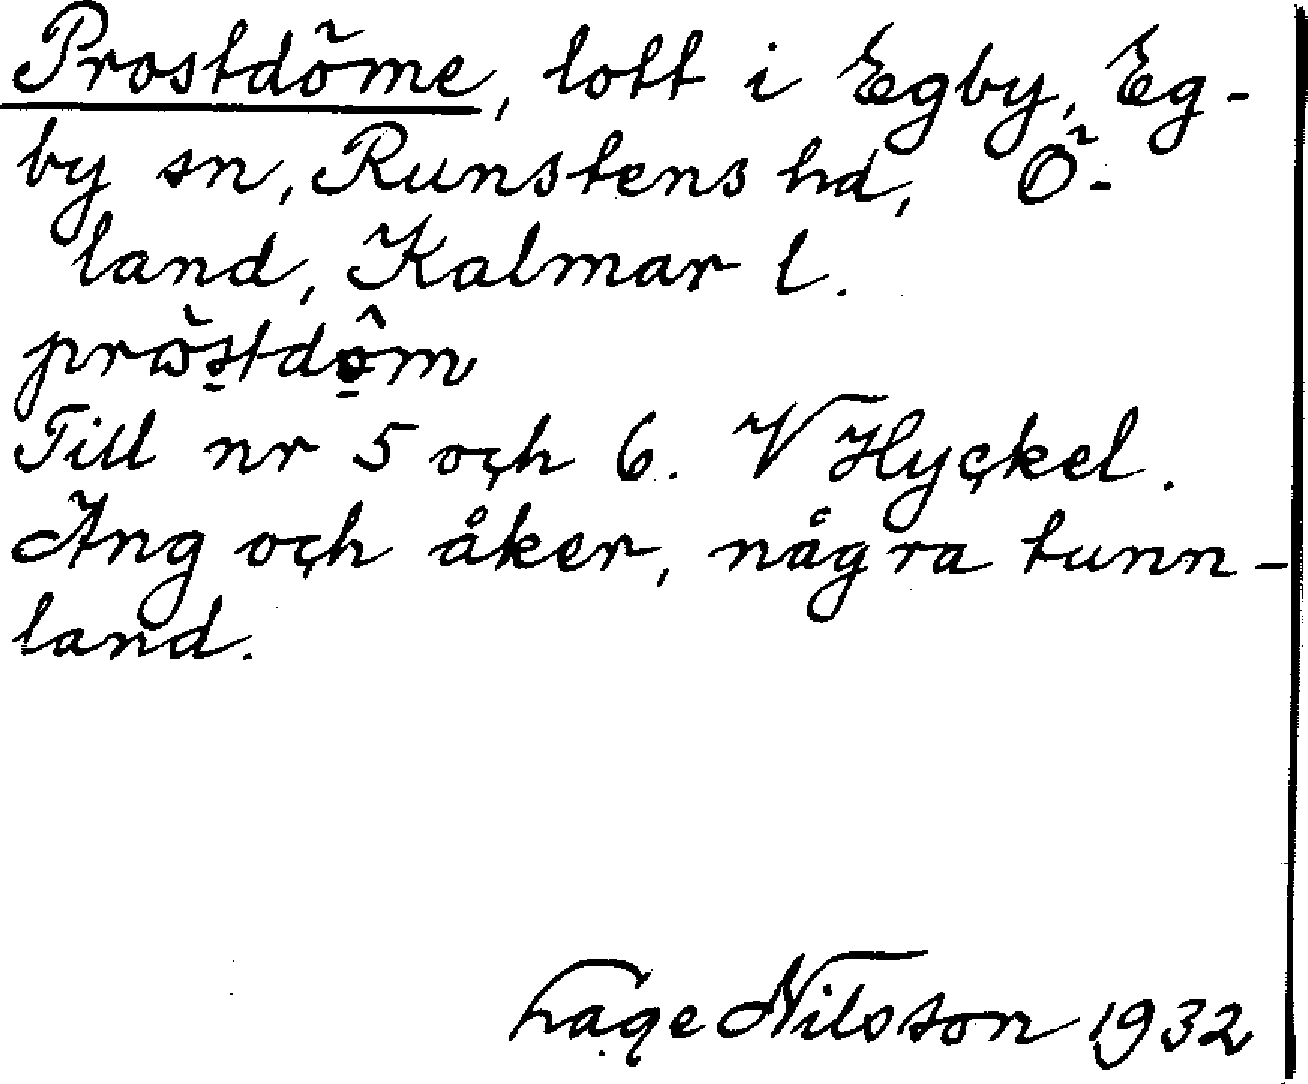 Prostdöme, lott i Egby, Eg-
by sn, Runstens hd, Ö-
land, Kalmar l.
pròstdôm
Till nr 5 och 6. V Hyckel.
Äng och åker, några tunn-
land.
Hage Nilsson 1932